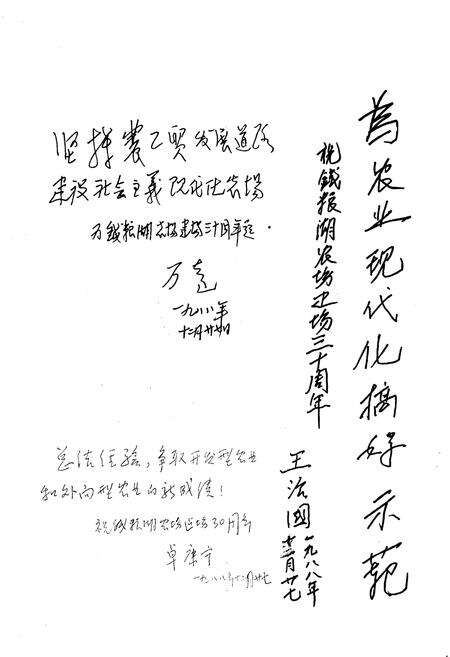 为农业现代化搞好示范
祝钱粮湖农场建场三十周年
王治國
一九八八年
十二月廿七
坚持農工贸发展道路
建设社会主義现代化农场
为钱粮湖农场建场三十周年题
万达
一九八八年
十二月廿七日
总结经验，争取开发型农业
和外向型农业的新成绩！
祝钱粮湖农场建场30周年
卓康宁
一九八八年十二月廿七